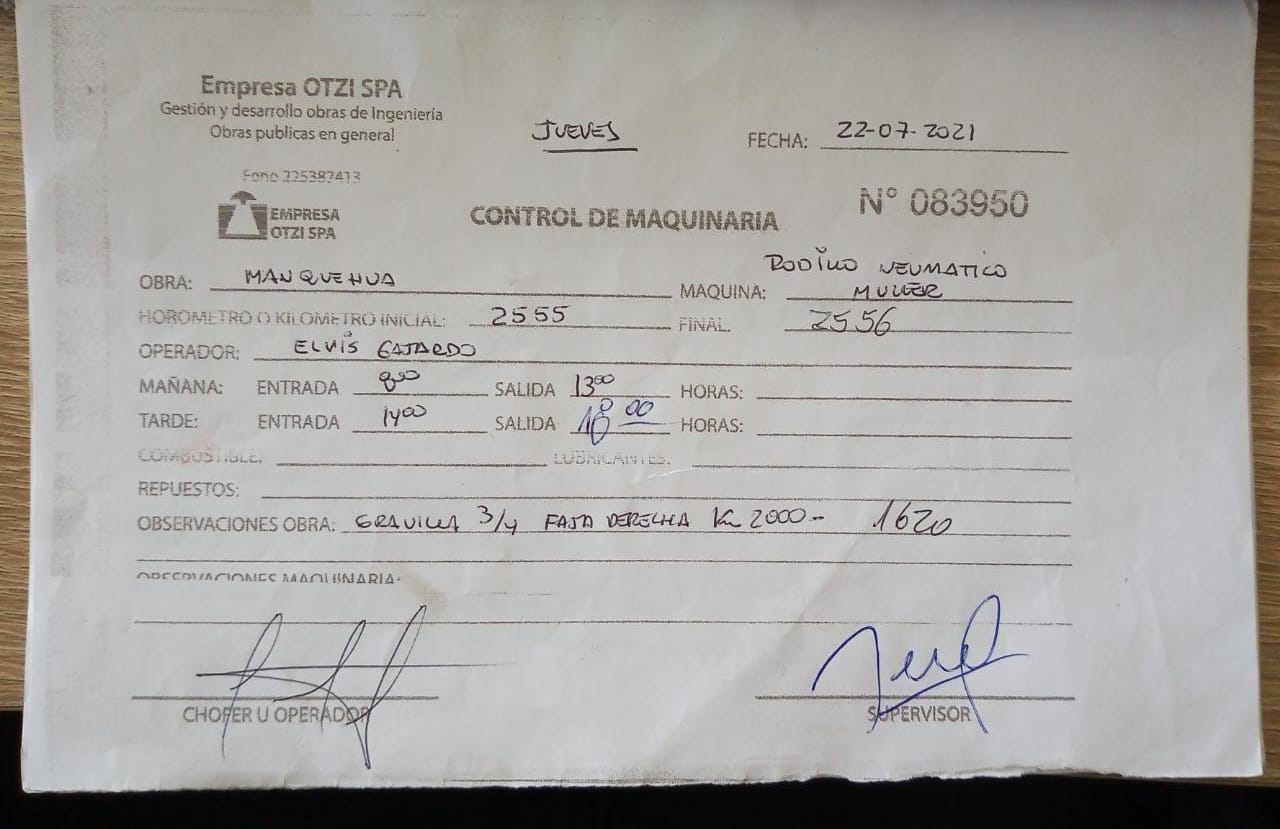 Empresa OTZI SPA
Gestión y desarrollo obras de Ingeniería
Obras publicas en general
JUEVES
FECHA: 22-07-2021
Fono 225387413
EMPRESA
OTZI SPA
CONTROL DE MAQUINARIA
N° 083950
OBRA: MANQUEHUA
MAQUINA: RODILLO NEUMATICO
MULLER
HOROMETRO O KILOMETRO INICIAL: 2555 FINAL. 2556
OPERADOR: ELVIS GAJARDO
MAÑANA: ENTRADA 800 SALIDA 1300 HORAS:
TARDE: ENTRADA 1400 SALIDA 18 00 HORAS:
COMBUSTIBLE. LUBRICANTES:
REPUESTOS:
OBSERVACIONES OBRA: GRAVILLA 3/4 FAJA DERECHA Km 2000- 1620
OBSERVACIONES MAQUINARIA:
CHOFER U OPERADOR
SUPERVISOR